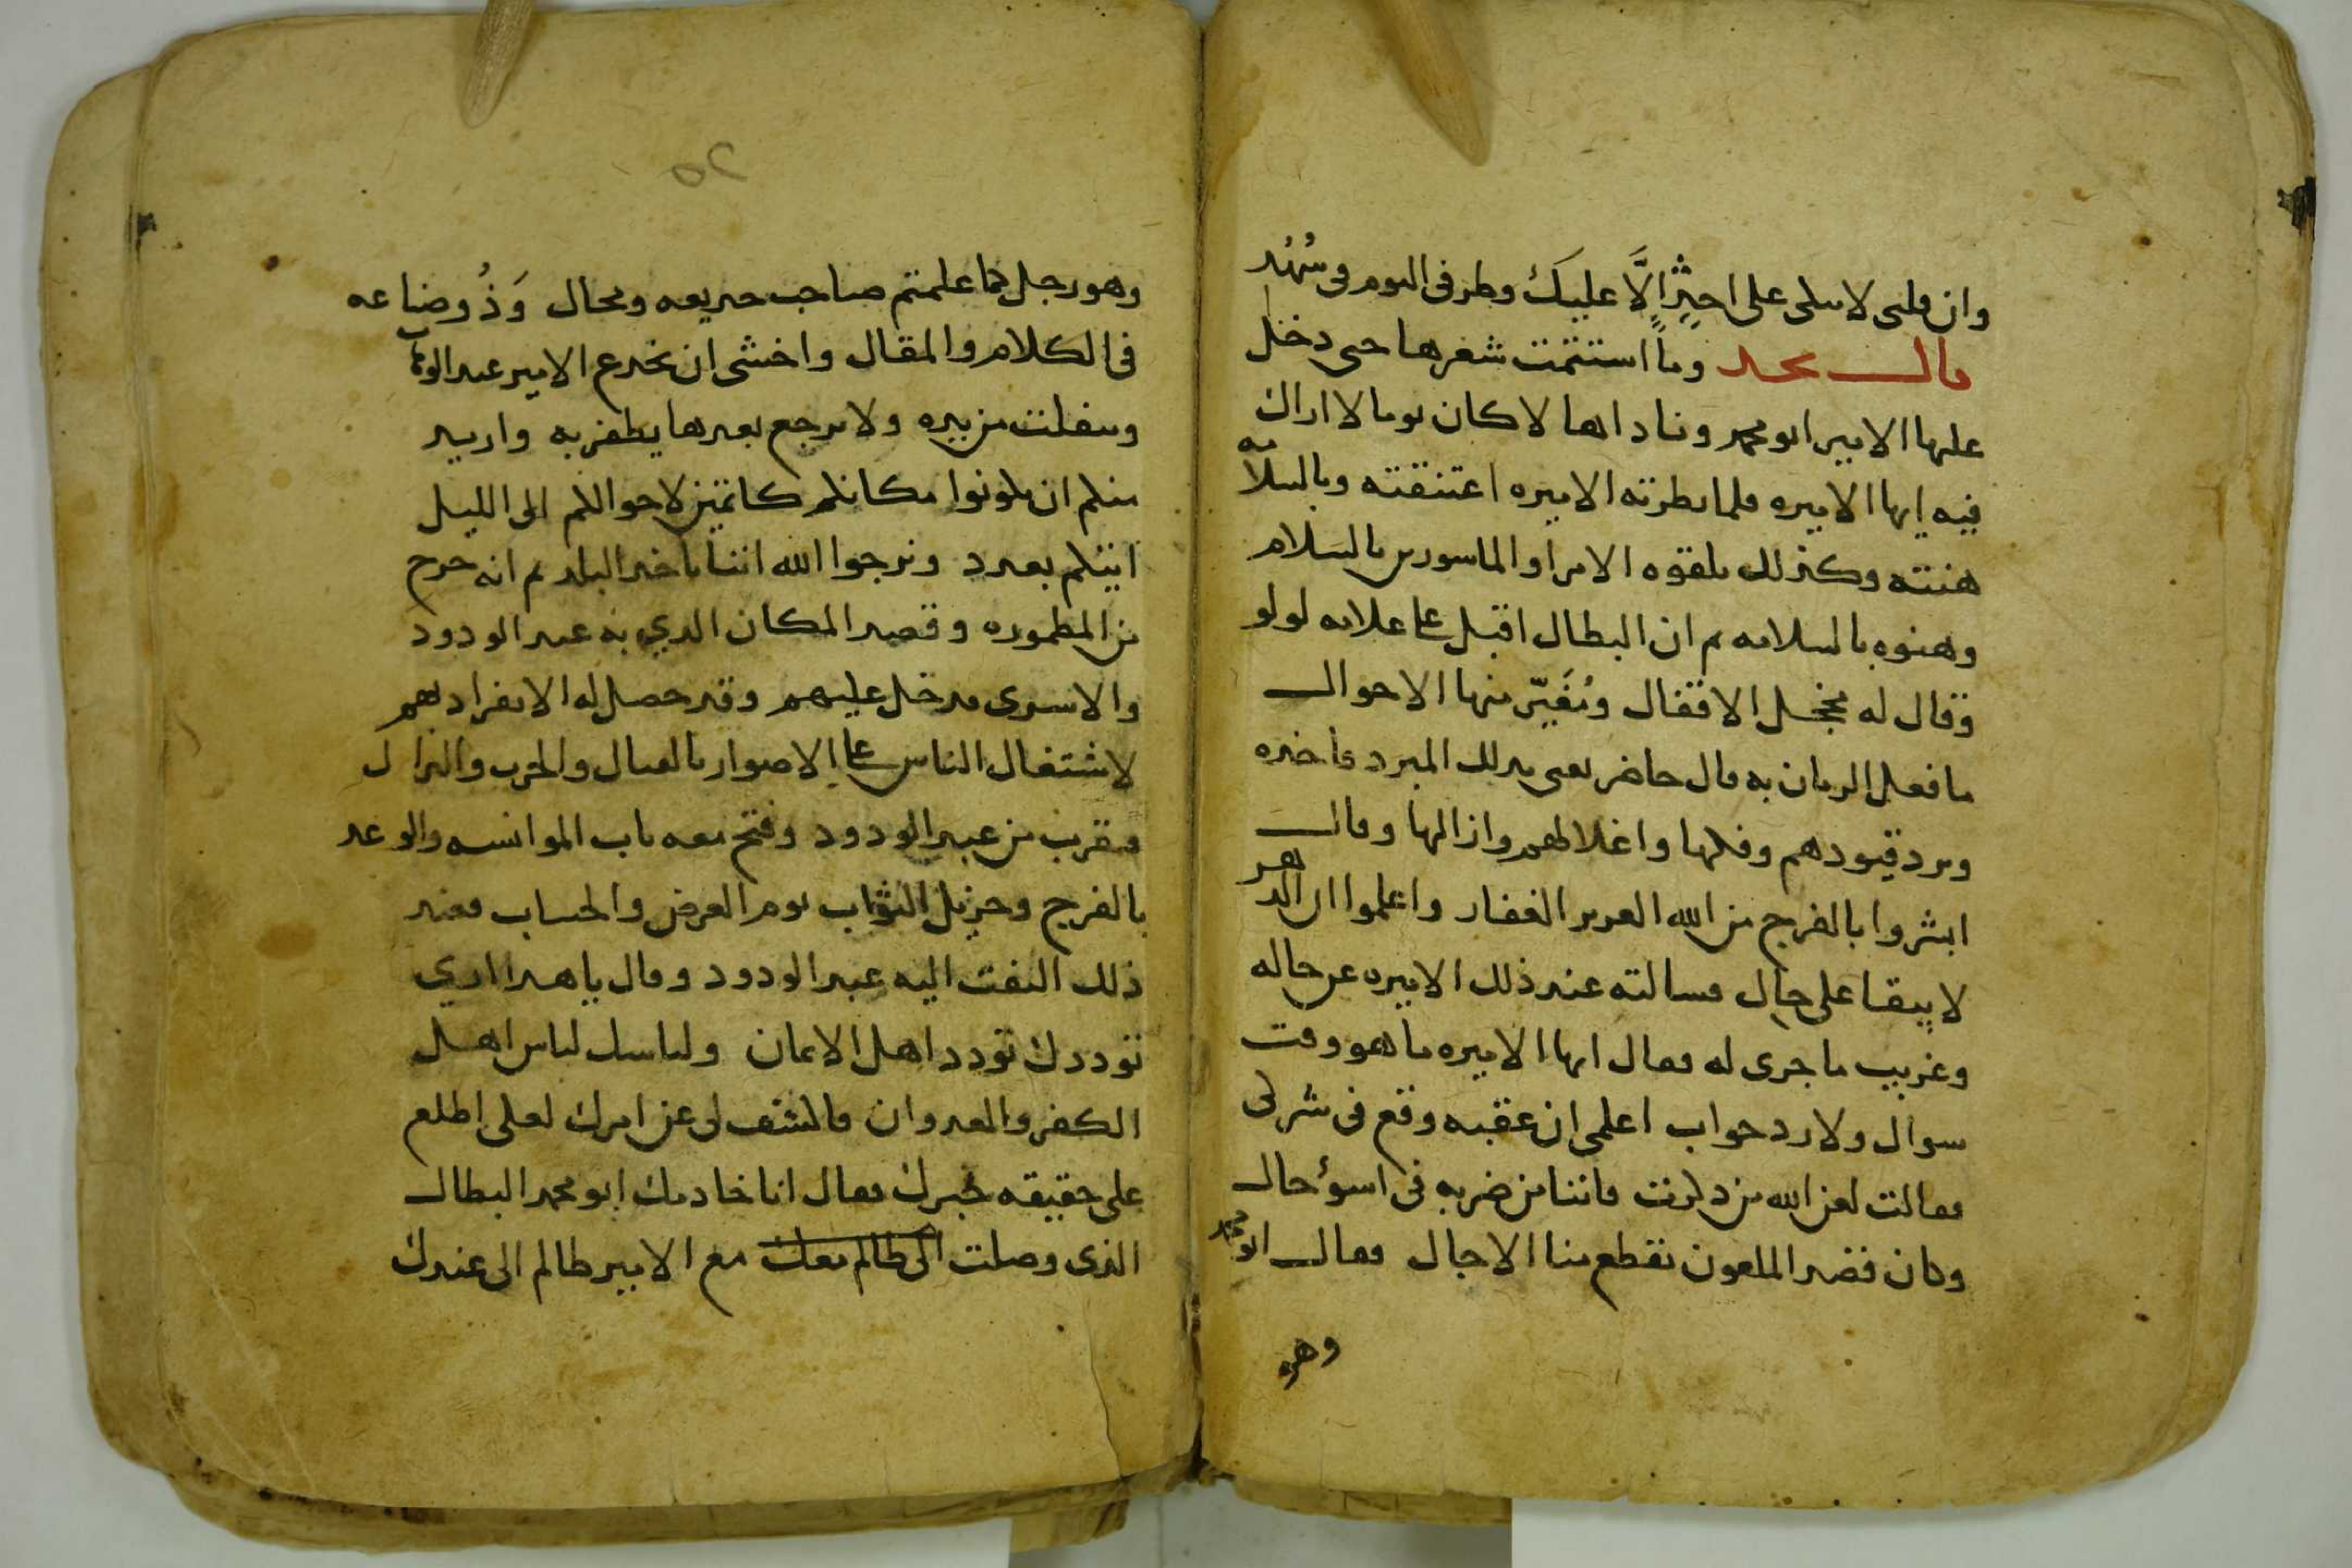 وان قلبى لا يبكى على احدٍ إلَّا عليكَ وطرفى اليوم فى سُهُد
قال نجد وما استتمت شعرها حتى دخل
عليها الامير ابو محمد وناداها لا كان يوما لا اراك
فيه ايها الاميره فلما نظرته الاميره اعتنقته وبالسلامه
هنته وكذلك تلقوه الامرا والماسورين بالسلام
وهنوه بالسلامه ثم ان البطال اقبل على غلامه لولو
وقال له الاقفال وتُغَيّر منها الاحوال
ما فعل الزمان به قال حاضر يعنى بذلك المبرد فاخذه
وبرد قيودهم وفكها واغلالهم وازالها وقال
ابشروا بالفرج من الله العزيز الغفار واعلموا ان الدهر
لا يبقا على حال فسالته عند ذلك الاميره عن حاله
وغريب ما جرى له فقال ايها الاميره ما هو وقت
سوال ولا رد جواب اعلمى ان عقبه وقع فى شركى
فقالت لعن الله من ذكرت فاننا من ضربه فى اسوء حال
وكان قصد الملعون تقطع منا الاجال فقال ابو محمد
وهو
٢٥
وهو رجل كما علمتم صاحب خديعه ومحال وَذُو صناعه
فى الكلام والمقال واخشى ان يخدع الامير عبد الوهاب
وينفلت من يده ولا نرجع بعدها نظفر به واريد
منكم ان تكونوا مكانكم كاتمين لاحوالكم الى الليل
اتيتكم بعدد ونرجوا الله اننا ناخذ البلد ثم انه خرج
من المطموره وقصد المكان الذي به عبد الودود
والاسرى فدخل عليهم وقد حصل له الانفراد بهم
لاشتغال الناس على الاصوار بالقتال والحرب والنزال
فتقرب من عبد الودود وفتح معه باب الموانسه والوعد
بالفرج وجزيل الثواب يوم العرض والحساب فعند
ذلك التفت اليه عبد الودود وقال يا هذا اري
توددك تودد اهل الايمان ولباسك لباس اهل
الكفر والعدوان فاكشف لى عن امرك لعلى اطلع
على حقيقه خبرك فقال انا خادمك ابو محمد البطال
الذى وصلت الى ظالم معك مع الامير ظالم الى عندك